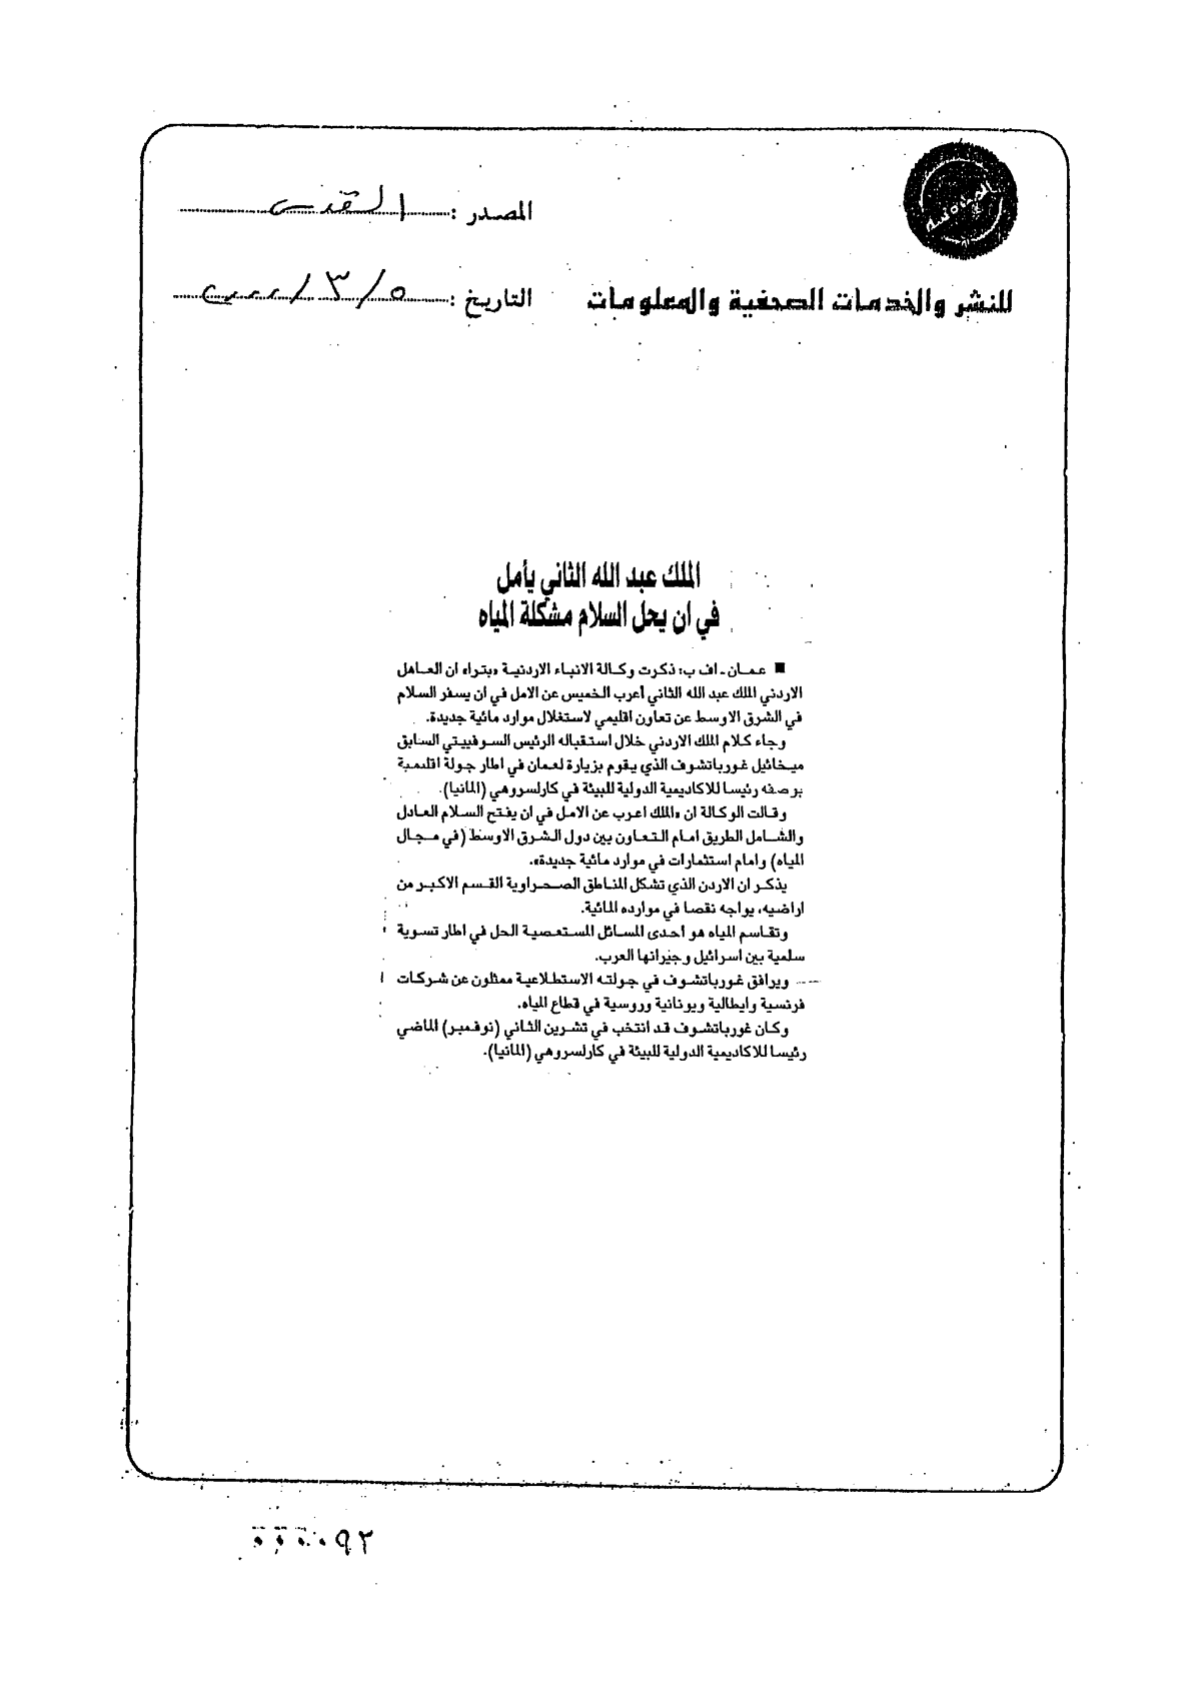 المصدر : القدس
للنشر والخدمات الصحفية والمعلومات
التاريخ : ٥ / ٣ / ٢٠٠٠
الملك عبد الله الثاني يأمل
في ان يحل السلام مشكلة المياه
■ عمان ـ اف ب: ذكرت وكالة الانباء الاردنية «بترا» ان العاهل
الاردني الملك عبد الله الثاني أعرب الخميس عن الامل في ان يسفر السلام
في الشرق الاوسط عن تعاون اقليمي لاستغلال موارد مائية جديدة.
وجاء كلام الملك الاردني خلال استقباله الرئيس السوفييتي السابق
ميخائيل غورباتشوف الذي يقوم بزيارة لعمان في اطار جولة اقليمية
بوصفه رئيسا للاكاديمية الدولية للبيئة في كارلسروهي (المانيا).
وقالت الوكالة ان «الملك اعرب عن الامل في ان يفتح السلام العادل
والشامل الطريق امام التعاون بين دول الشرق الاوسط (في مجال
المياه) وامام استثمارات في موارد مائية جديدة».
يذكر ان الاردن الذي تشكل المناطق الصحراوية القسم الاكبر من
اراضيه، يواجه نقصا في موارده المائية.
وتقاسم المياه هو احدى المسائل المستعصية الحل في اطار تسوية
سلمية بين اسرائيل وجيرانها العرب.
ويرافق غورباتشوف في جولته الاستطلاعية ممثلون عن شركات
فرنسية وايطالية ويونانية وروسية في قطاع المياه.
وكان غورباتشوف قد انتخب في تشرين الثاني (نوفمبر) الماضي
رئيسا للاكاديمية الدولية للبيئة في كارلسروهي (المانيا).